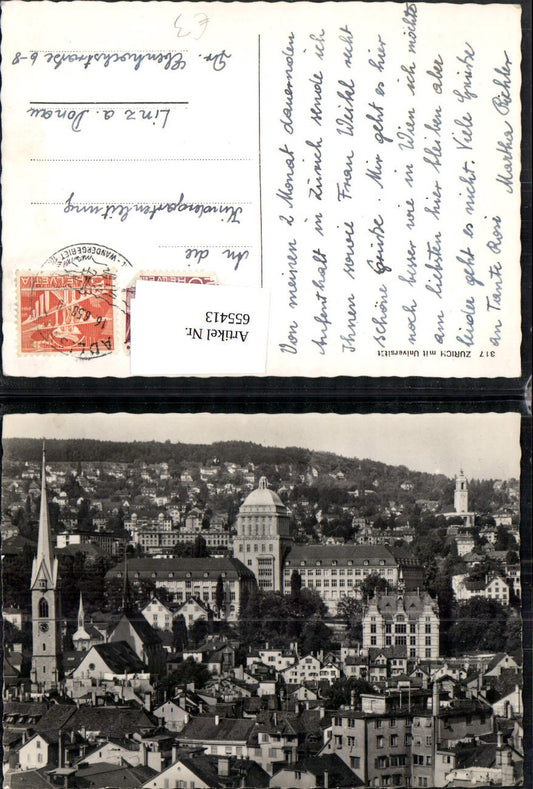 Von meinen 2 Monat dauernden
Aufenthalt in Zürich sende ich
Ihnen sowie Frau Weikel recht
schöne Grüße. Mir geht es hier
noch besser wie in Wien ich möchte
am liebsten hier bleiben aber
leider geht es nicht. Viele Grüße
an Tante Rosi Martha Pichler
317 ZURICH mit Universität
An die
Kindergartenleitung
Linz a. Donau
Dr. Ebenhochstraße 6-8
€3
HELVETIA
HELVETIA
WANDERGEBIET
Artikel Nr.
655413